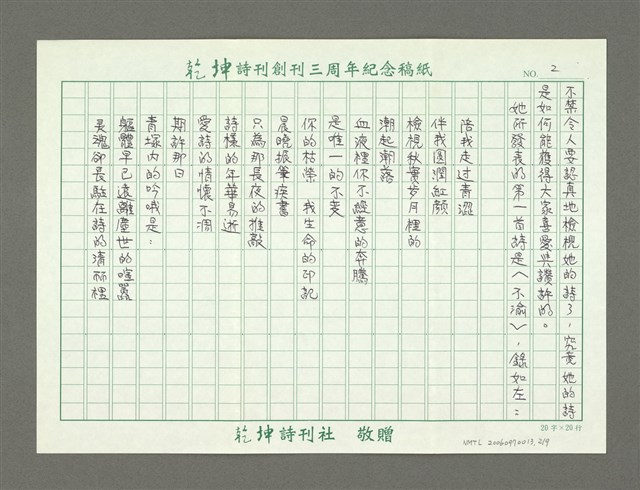 乾坤詩刊創刊三周年紀念稿紙
NO. 2
不禁令人要認真地檢視她的詩了，究竟她的詩
是如何能獲得大家喜愛與讚許的。
她所發表的第一首詩是〈不渝〉，錄如左：
陪我走过青澀
伴我圓潤紅顏
檢視秋實岁月裡的
潮起潮落
血液裡你不經意的奔騰
是唯一的不变
你的枯榮　我生命的印記
晨曉振筆疾書
只為那長夜的推敲
詩樣的年華易逝
愛詩的情懷不凋
期許那日
青塚内的吟哦是：
軀體早已遠離塵世的喧囂
是魂卻長駐在詩的清丽裡
乾坤詩刊社　敬贈
20字×20行
NMTL 20060970013, 2/9